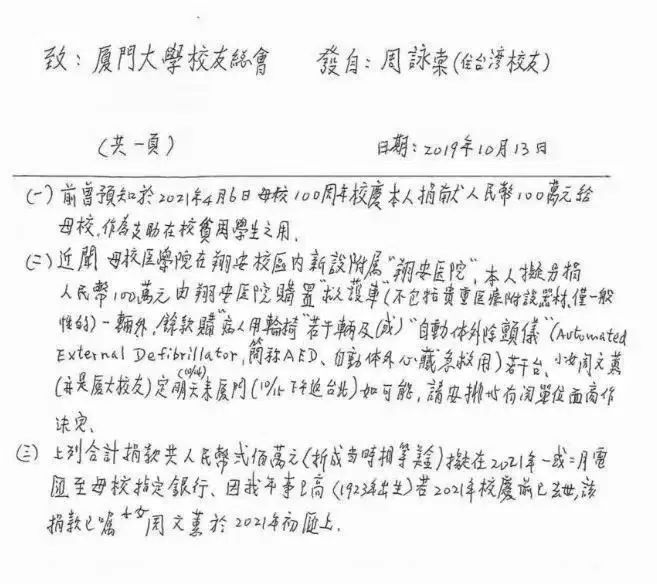 致：厦門大學校友總會 發自：周詠棠(住台湾校友)
(共一頁) 日期：2019年10月13日
(一)前曾預知於2021年4月6日母校100周年校慶本人捐献人民幣100萬元給
母校,作為支助在校貧困學生之用.
(二)近聞母校医學院在翔安校區内新設附属"翔安医院",本人擬另捐
人民幣100萬元由翔安医院購置"救護車"(不包括貴重医療附設器材,僅一般
性的)一輛外,餘款購"病人用輪椅"若干輛及(或)"自動体外除顫儀"(Automated
External Defibrillator,簡称AED、自動体外心臟急救用)若干台、小女周文薰
(亦是厦大校友)定明天(10/14)来厦門(10/15下午返台北)如可能,請安排与有関單位面商作
决定.
(三)上列合計捐款共人民幣弍佰萬元(折成當時相等美金)擬在2021年一或二月電
匯至母校指定銀行、因我年事已高(1923年出生)若2021年校慶前已去世,該
捐款已嘱小女周文薰於2021年初匯上.